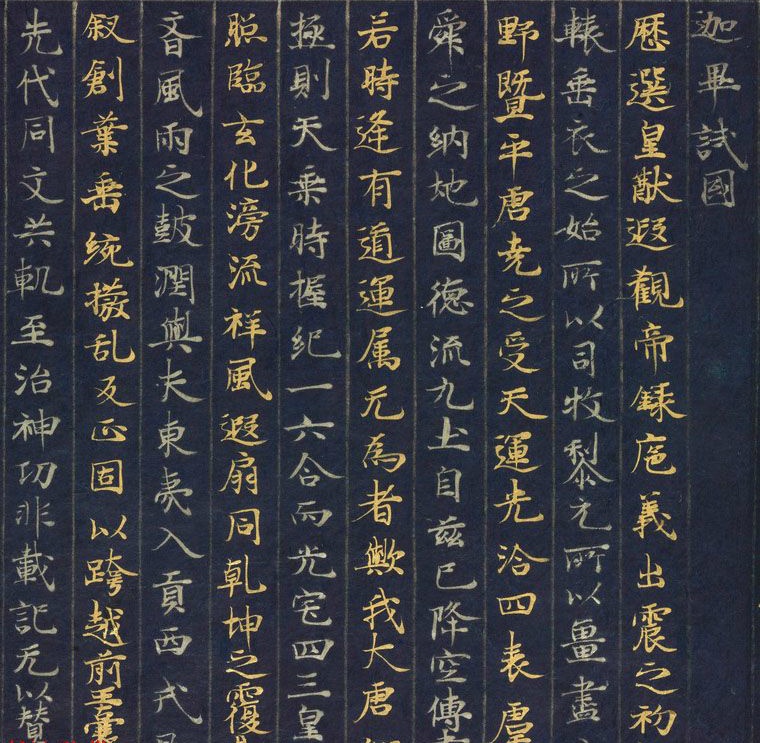 迦畢試國
歷選皇猷遐觀帝錄庖義出震之初
轅垂衣之始所以司牧黎元所以畺畫
野暨乎唐堯之受天運光洽四表
舜之納地圖德流九土自茲已降空傳
若時逢有道運属无為者歟我大唐
極則天乗時握紀一六合而光宅四三皇
照臨玄化滂流祥風遐扇同乾坤之覆
斉風雨之鼓潤與夫東夷入貢西戎
叙創業垂統撥乱反正固以跨越前王囊
先代同文共軌至治神功非載記无以賛